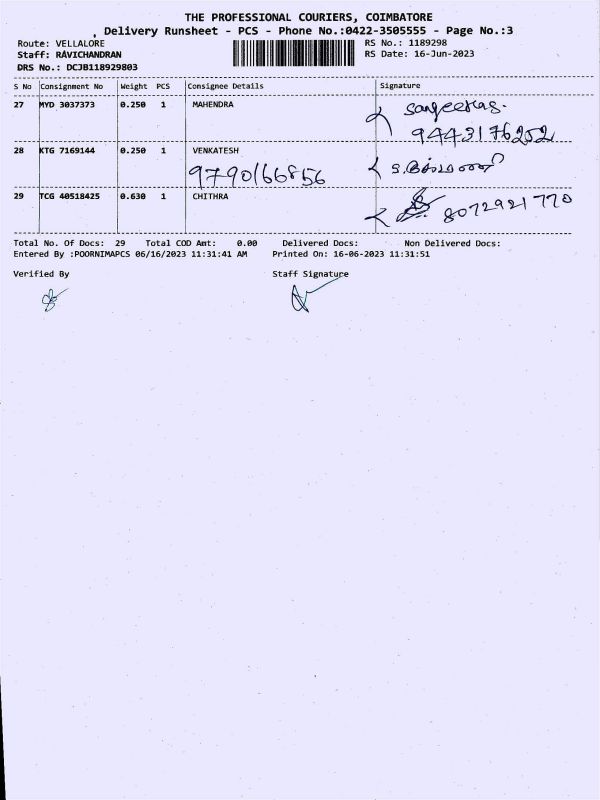 THE PROFESSIONAL COURIERS, COIMBATORE
Delivery Runsheet - PCS - Phone No.:0422-3505555 - Page No.:3
Route: VELLALORE RS No.: 1189298
Staff: RAVICHANDRAN RS Date: 16-Jun-2023
DRS No.: DCJB118929803
S No Consignment No Weight PCS Consignee Details Signature
27 MYD 3037373 0.250 1 MAHENDRA
9443176252
28 KTG 7169144 0.250 1 VENKATESH
9790166856
29 TCG 40518425 0.630 1 CHITHRA 8072921770
Total No. Of Docs: 29 Total COD Amt: 0.00 Delivered Docs: Non Delivered Docs:
Entered By :POORNIMAPCS 06/16/2023 11:31:41 AM Printed On: 16-06-2023 11:31:51
Verified By Staff Signature